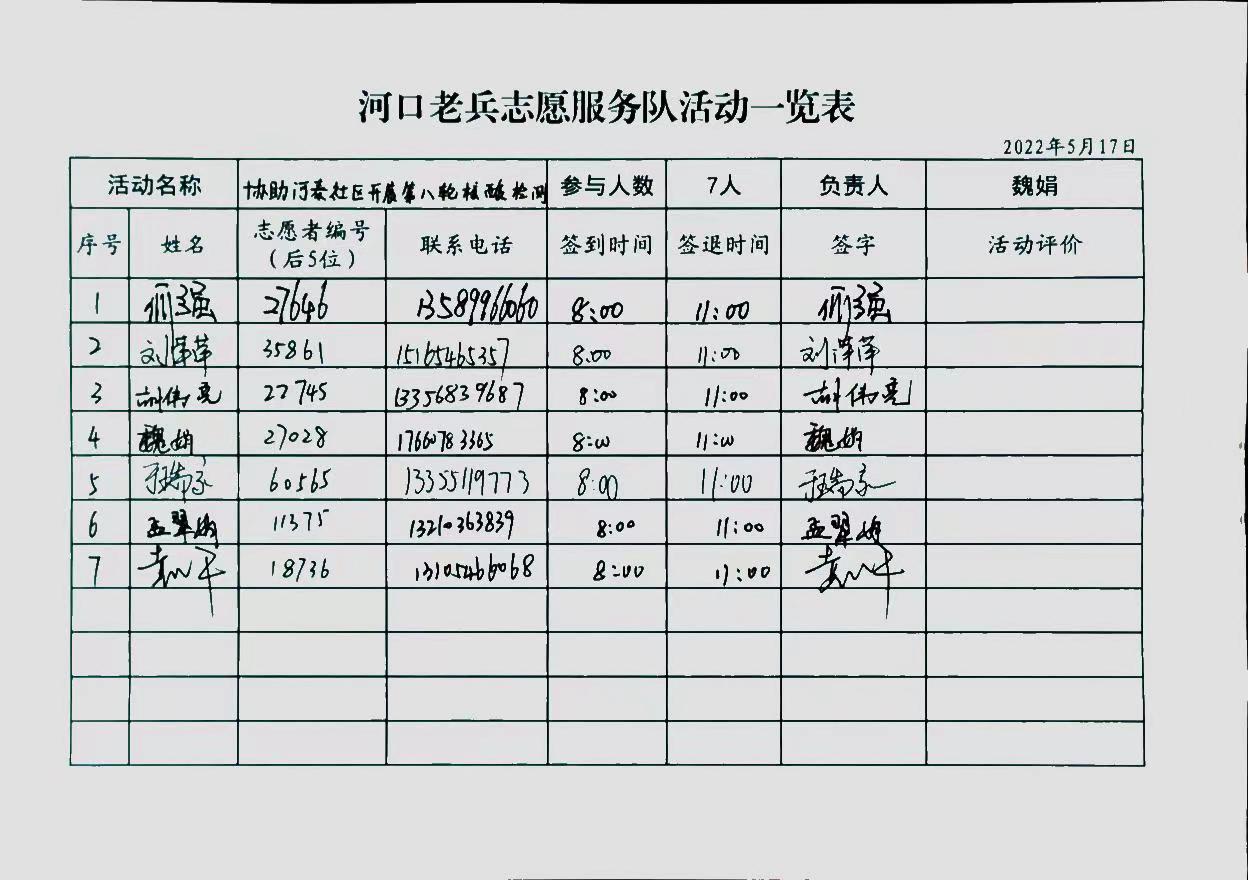 河口老兵志愿服务队活动一览表
2022年5月17日
活动名称 协助河泰社区开展第八轮核酸检测 参与人数 7人 负责人 魏娟
序号 姓名 志愿者编号（后5位） 联系电话 签到时间 签退时间 签字 活动评价
1 27646 13589966060 8:00 11:00
2 刘萍萍 35861 15165465357 8:00 11:00 刘萍萍
3 胡伟亮 22745 13356839687 8:00 11:00 胡伟亮
4 魏娟 27028 17660783365 8:00 11:00 魏娟
5 60565 13355119773 8:00 11:00
6 孟翠娟 11375 13210363839 8:00 11:00 孟翠娟
7 18736 13105466068 8:00 11:00